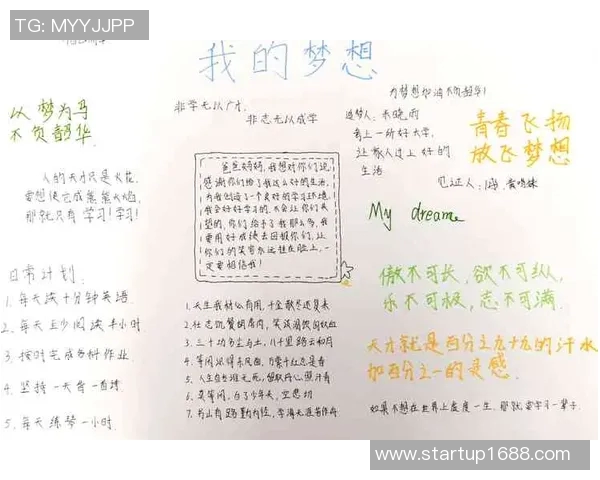 TG: MYYJJPP
我的梦想
以梦为马
不负韶华
人的天才只是火花,
要想使它成熊熊火焰,
那就只有学习!学习!
日常计划
1、每天读十分钟英语.
2、每天至少阅读半小时
3、按时完成各科作业
4、坚持一天背一首诗
5、每天练琴一小时.
非学无以广才,
非志无以成学
爸爸妈妈,我想对你们说,
感谢你们给了我这么好的生活,
为我创造了一个良好的学习环境,
我会好好学习的,不会让你们失
望的,你们给予了我那么多,我
要用好成绩去回报你们,让
你们的笑容永远挂在脸上,一
定要相信我!
1、天生我材必有用,千金散尽还复来
2、壮志饥餐胡虏肉,笑谈渴饮匈奴血
3、三十功名尘与土,八千里路云和月
4、等闲识得东风面,万紫千红总是春
5、人生自古谁无死,留取丹心照汗青
6、莫等闲,白了少年头,空悲切
7、书山有路勤为径,学海无涯苦作舟
为梦想加油不负韶华!
追梦人:
考上一所好大学,
让家人过上好的
生活
见证人:
青春飞扬
放飞梦想
My dream
傲不可长,欲不可纵,
乐不可极,志不可满.
天才就是百分之九十九的汗水
加百分之一的灵感.
如果不想在世界上虚度一生,那就要学习一辈子.
www.startup1688.com